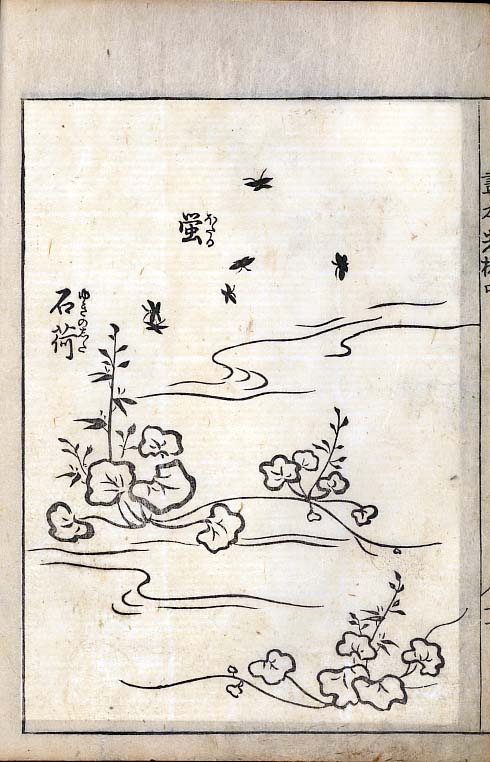 蛍
ほたる
石荷
ゆきのした